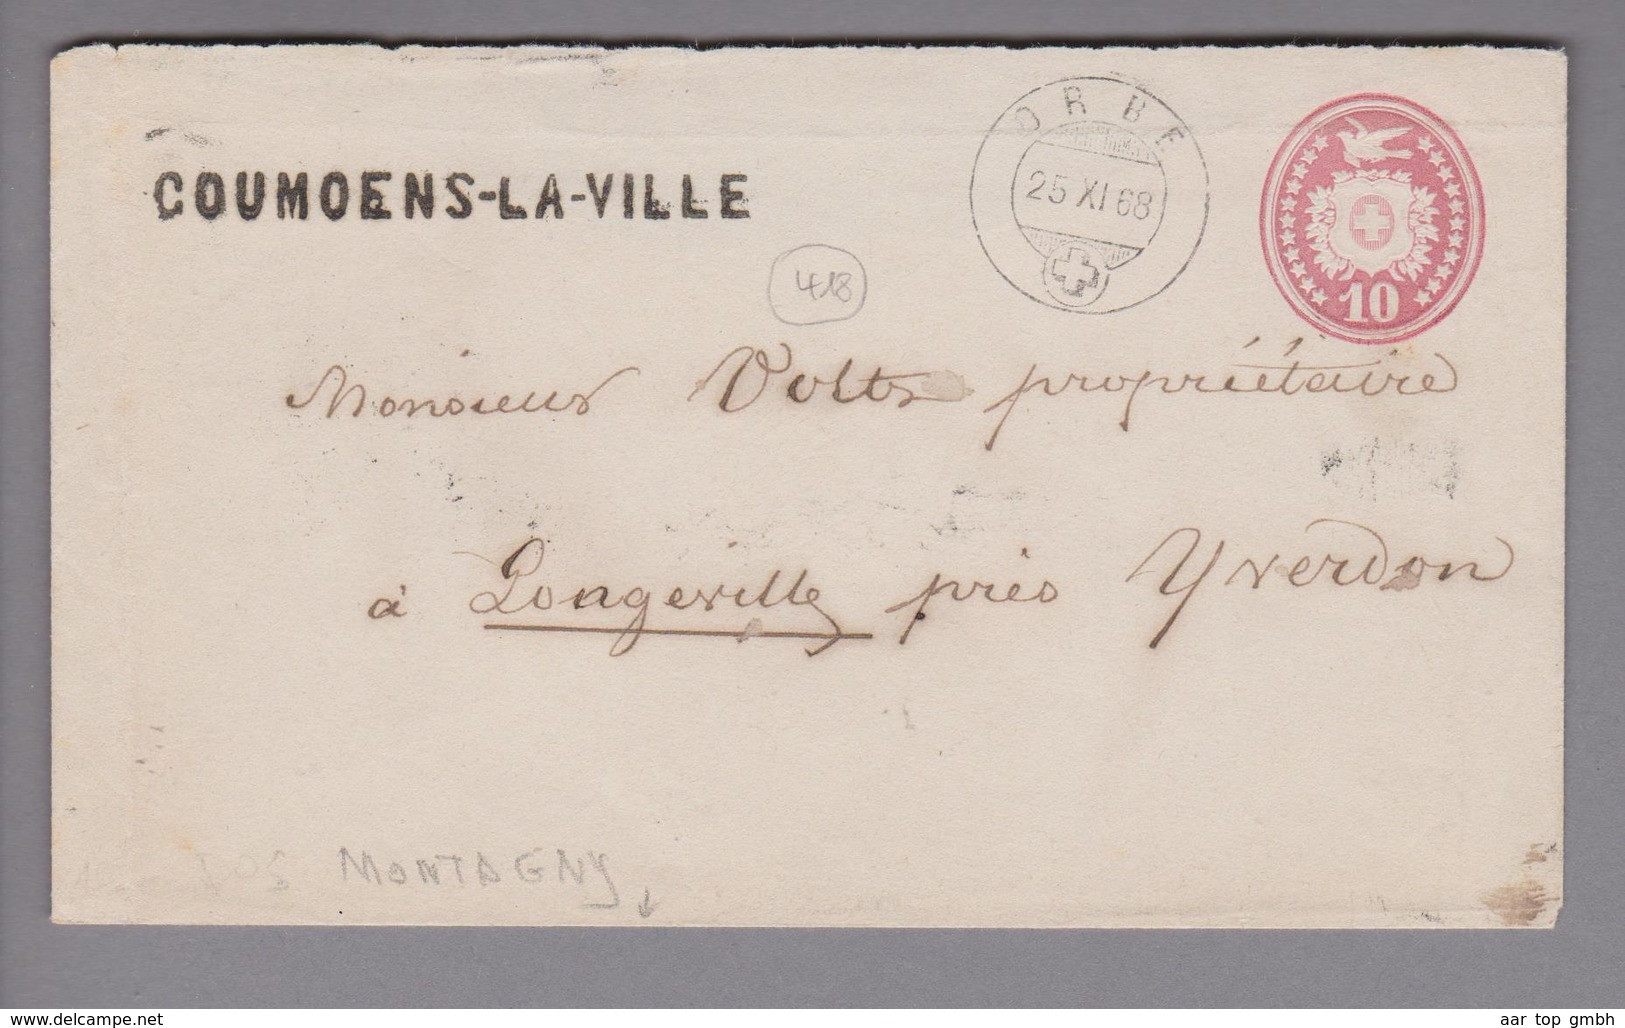 ORBE
25 XI 68
COUMOENS-LA-VILLE
10
418
Monsieur Volts propriétaire
à Longeville près Yverdon
MONTAGNY
www.delcampe.net
aar top gmbh